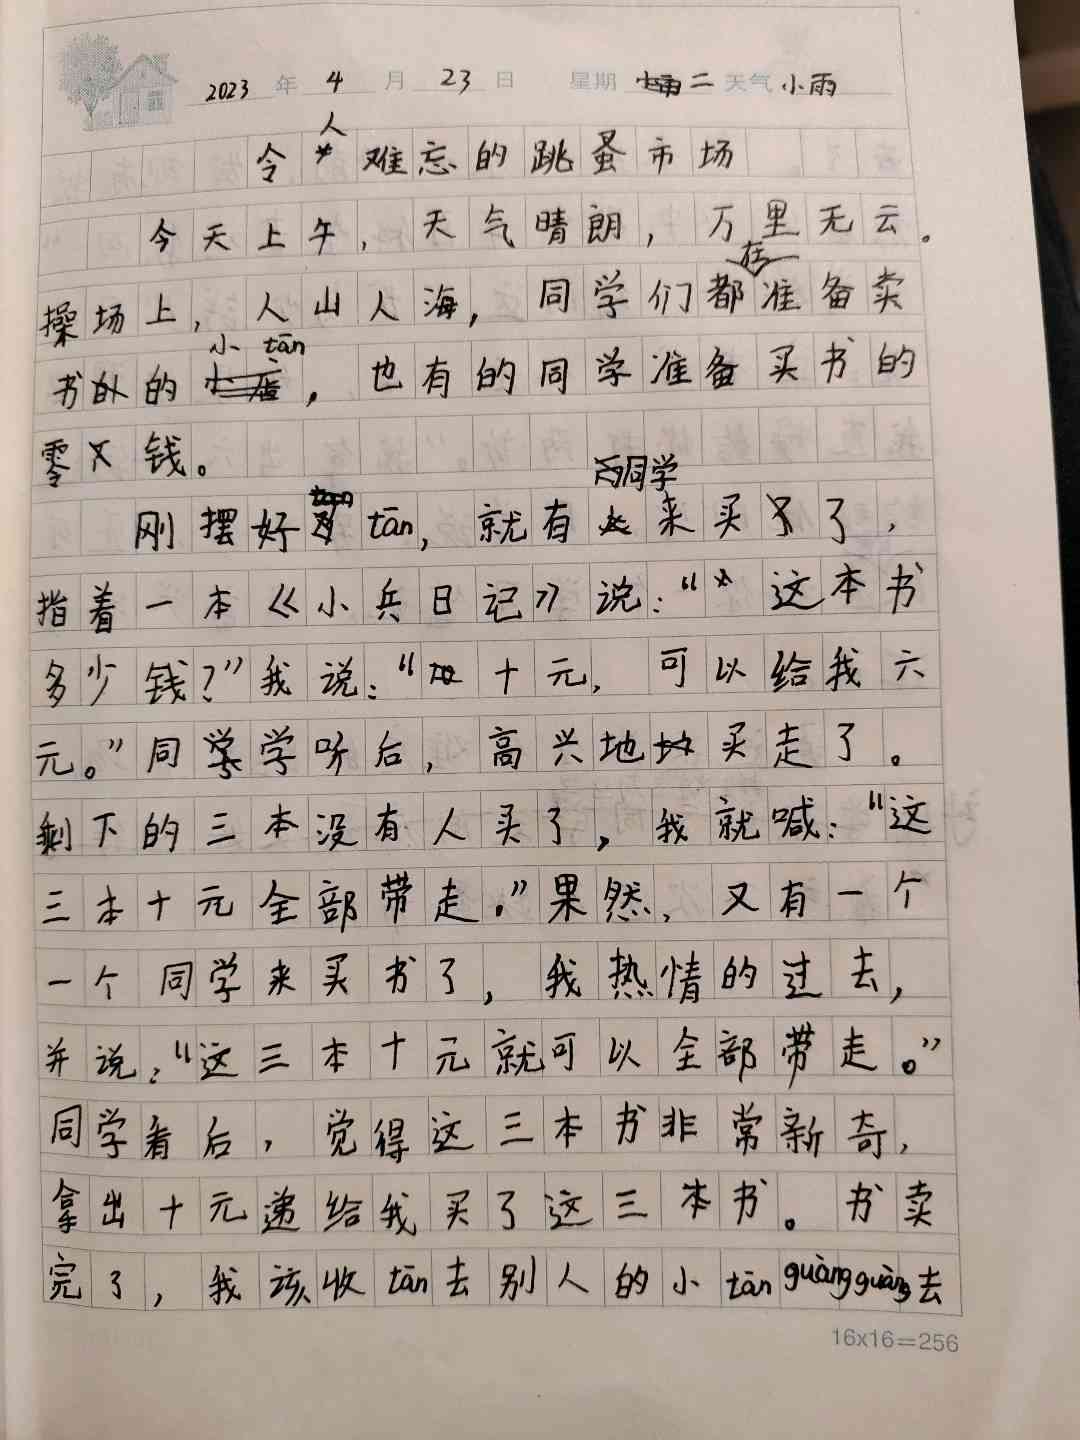 2023 年 4 月 23 日 星期 二 天气 小雨
令人难忘的跳蚤市场
今天上午，天气晴朗，万里无云。
操场上，人山人海，同学们都在准备卖
书的小tān，也有的同学准备买书的
零钱。
刚摆好tān，就有同学来买了，
指着一本《小兵日记》说：“这本书
多少钱？”我说：“十元，可以给我六
元。”同学听后，高兴地买走了。
剩下的三本没有人买了，我就喊：“这
三本十元全部带走。”果然，又有一个
一个同学来买书了，我热情的过去，
并说：“这三本十元就可以全部带走。”
同学看后，觉得这三本书非常新奇，
拿出十元递给我买了这三本书。书卖
完了，我该收tān去别人的小tānguàngguàng去
16x16=256